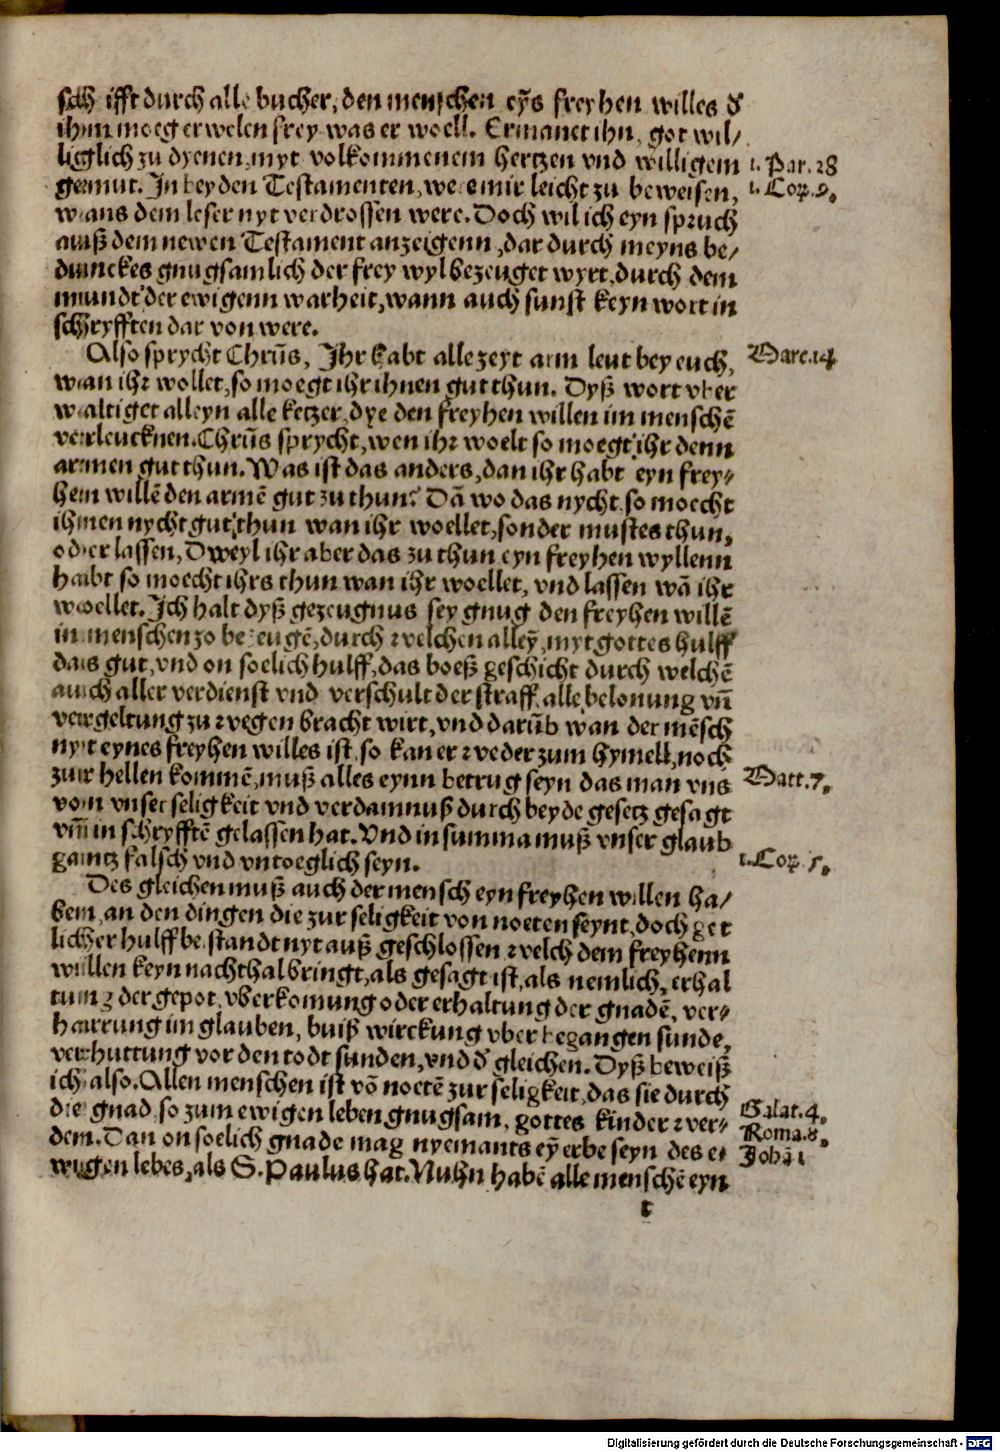 schrifft durch alle bucher, den menschen eyñs freyhen willes d̕
ihm moeg erwelen frey was er woell. Ermanet ihn, got wil/
liglich zu dyenen, myt volkommenem hertzen vnd willigem
gemut. In beyden Testamenten, were mir leicht zu beweisen,
wans dem leser nyt verdrossen were. Doch wil ich eyn spruch
auß dem newen Testament anzeigenn, dar durch meyns be/
dunckes gnugsamlich der frey wyl bezeuget wyrt, durch dem
mundt der ewigenn warheit, wann auch sunst keyn wort in
schryfften dar von were.
Also sprycht Chrūs, Ihr habt alle zeyt arm leut bey euch,
wan ihr wollet, so moegt ihr ihnen gut thun. Dyß wort vber
waltiget alleyn alle ketzer, dye den freyhen willen im menschē
verleucknen. Chrūs sprycht, wen ihr woelt so moegt ihr denn
armen gut thun. Was ist das anders, dan ihr habt eyn frey/
hem willē den armē gut zu thun? Dā wo das nycht, so moecht
ihnen nycht gut thun wan ihr woellet, sonder mustes thun,
oder lassen, Dweyl ihr aber das zu thun eyn freyhen wyllenn
habt so moecht ihrs thun wan ihr woellet, vnd lassen wā ihr
woellet. Ich halt dyß gezeugnus sey gnug den freyhen willē
in menschen zo bezeugē, durch welchen alleȳ, myt gottes hulff
das gut, vnd on soelich hulff, das boeß geschicht durch welchē
auch aller verdienst vnd verschult der straff, alle belonung vñ
vergeltung zu wegen bracht wirt, vnd darūb wan der mēsch
nyt eynes freyhen willes ist, so kan er weder zum hymell, noch
zur hellen kommē, muß alles eynn betrug seyn das man vns
von vnser seligkeit vnd verdamnuß durch beyde gesetz gesagt
vñ in schryfftē gelassen hat. Vnd in summa muß vnser glaub
gantz falsch vnd vntoeglich seyn.
Des gleichen muß auch der mensch eyn freyhen willen ha/
ben, an den dingen die zur seligkeit von noeten seynt, doch got
licher hulff beistandt nyt auß geschlossen welch dem freyhenn
willen keyn nachthal bringt, als gesagt ist, als nemlich, erhal
tung der gepot, vberkomung oder erhaltung der gnadē, ver/
harrung im glauben, buiß wirckung vber begangen sunde,
verhuttung vor den todt sunden, vnd d̕ gleichen. Dyß beweiß
ich also. Allen menschen ist vō noetē zur seligkeit, das sie durch
die gnad, so zum ewigen leben gnugsam, gottes kinder wer/
dem. Dan on soelich gnade mag nyemants eȳ erbe seyn des e/
wigen lebes, als S. Paulus hat. Nuhn habē alle menschē eyn
t
1. Par. 28
1. Cor. 9.
Marc. 14
Matt. 7.
1. Cor. 5.
Galat. 4.
Roma. 8.
Johā 1
Digitalisierung gefördert durch die Deutsche Forschungsgemeinschaft - DFG